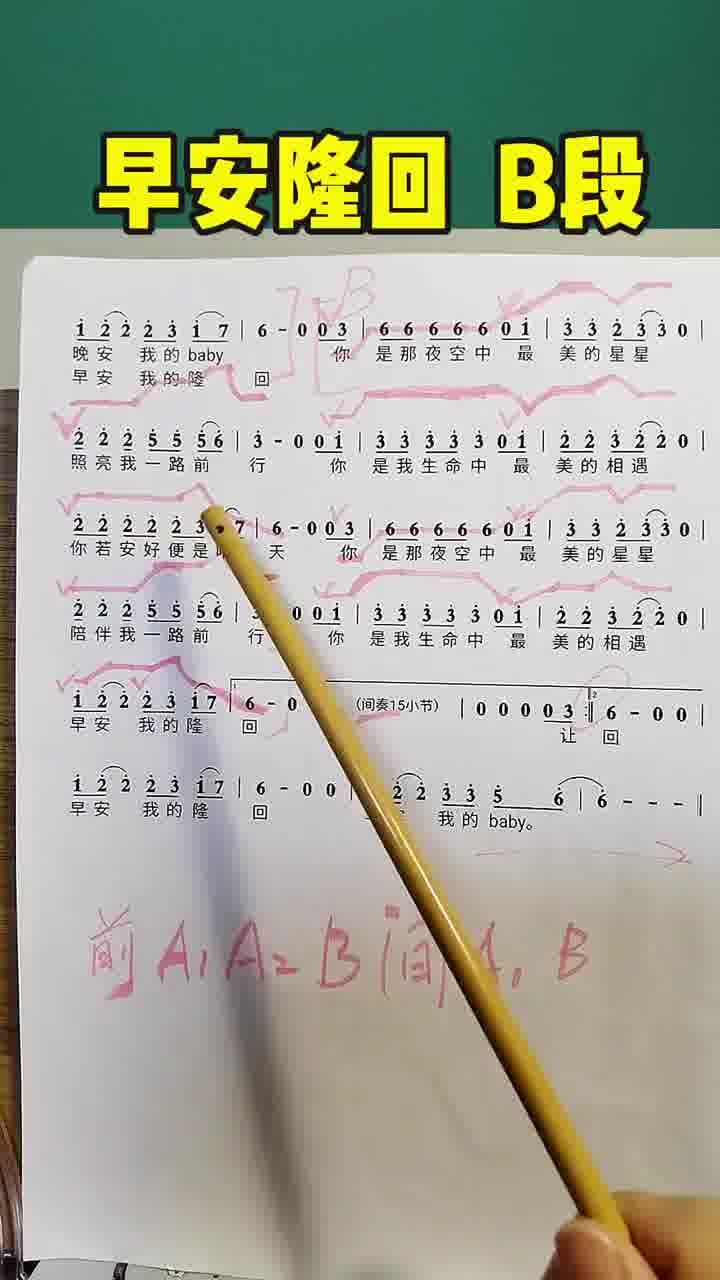 早安隆回 B段
B
1 2 2 2 3 1 7 | 6 - 0 0 3 | 6 6 6 6 6 0 1 | 3 3 2 3 3 0 |
晚安 我的 baby 你 是那夜空中 最 美的星星
早安 我的隆 回
2 2 2 5 5 5 6 | 3 - 0 0 1 | 3 3 3 3 3 0 1 | 2 2 3 2 2 0 |
照亮我一路前 行 你 是我生命中 最 美的相遇
2 2 2 2 2 3 7 | 6 - 0 0 3 | 6 6 6 6 6 0 1 | 3 3 2 3 3 0 |
你若安好便是 天 你 是那夜空中 最 美的星星
2 2 2 5 5 5 6 | 0 0 1 | 3 3 3 3 3 0 1 | 2 2 3 2 2 0 |
陪伴我一路前 行 你 是我生命中 最 美的相遇
1 2 2 2 3 1 7 | 1. 6 - 0 (间奏15小节) | 0 0 0 0 3 :‖ 2. 6 - 0 0 |
早安 我的隆 回 让 回
1 2 2 2 3 1 7 | 6 - 0 0 | 2 2 3 3 5 6 | 6 - - - |
早安 我的隆 回 我的 baby。
前 A1 A2 B 间 A1 B